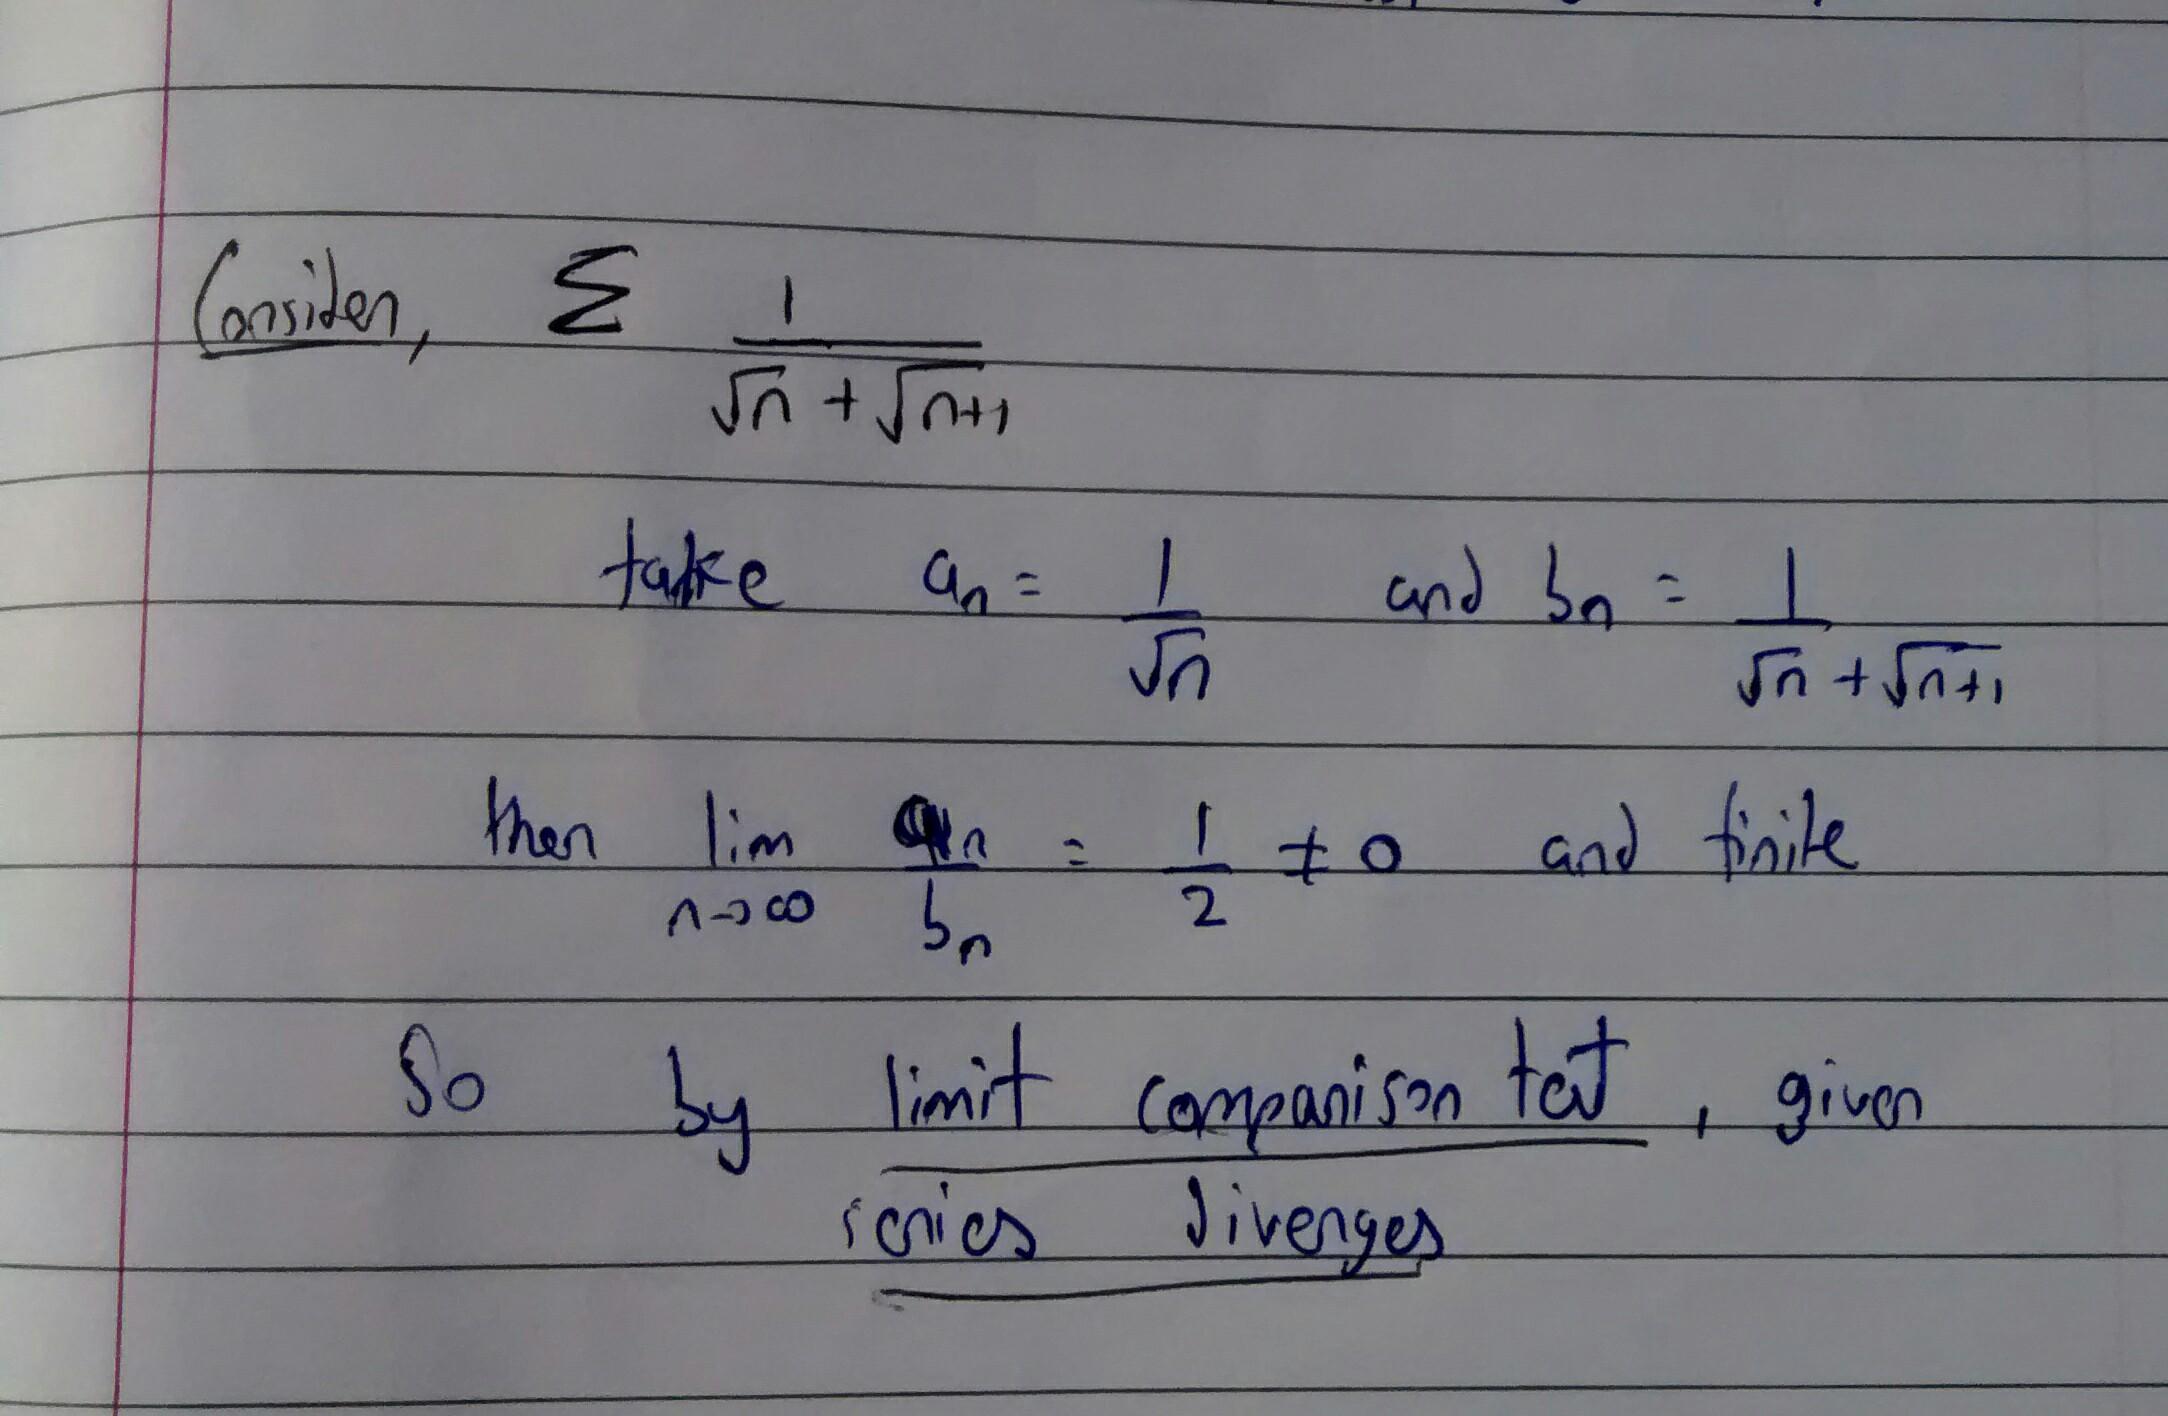 Consider, Σ 1/(√n + √n+1)
take aₙ = 1/√n and bₙ = 1/(√n + √n+1)
then lim n→∞ aₙ/bₙ = 1/2 ≠ 0 and finite
So by limit comparison test, given
series diverges